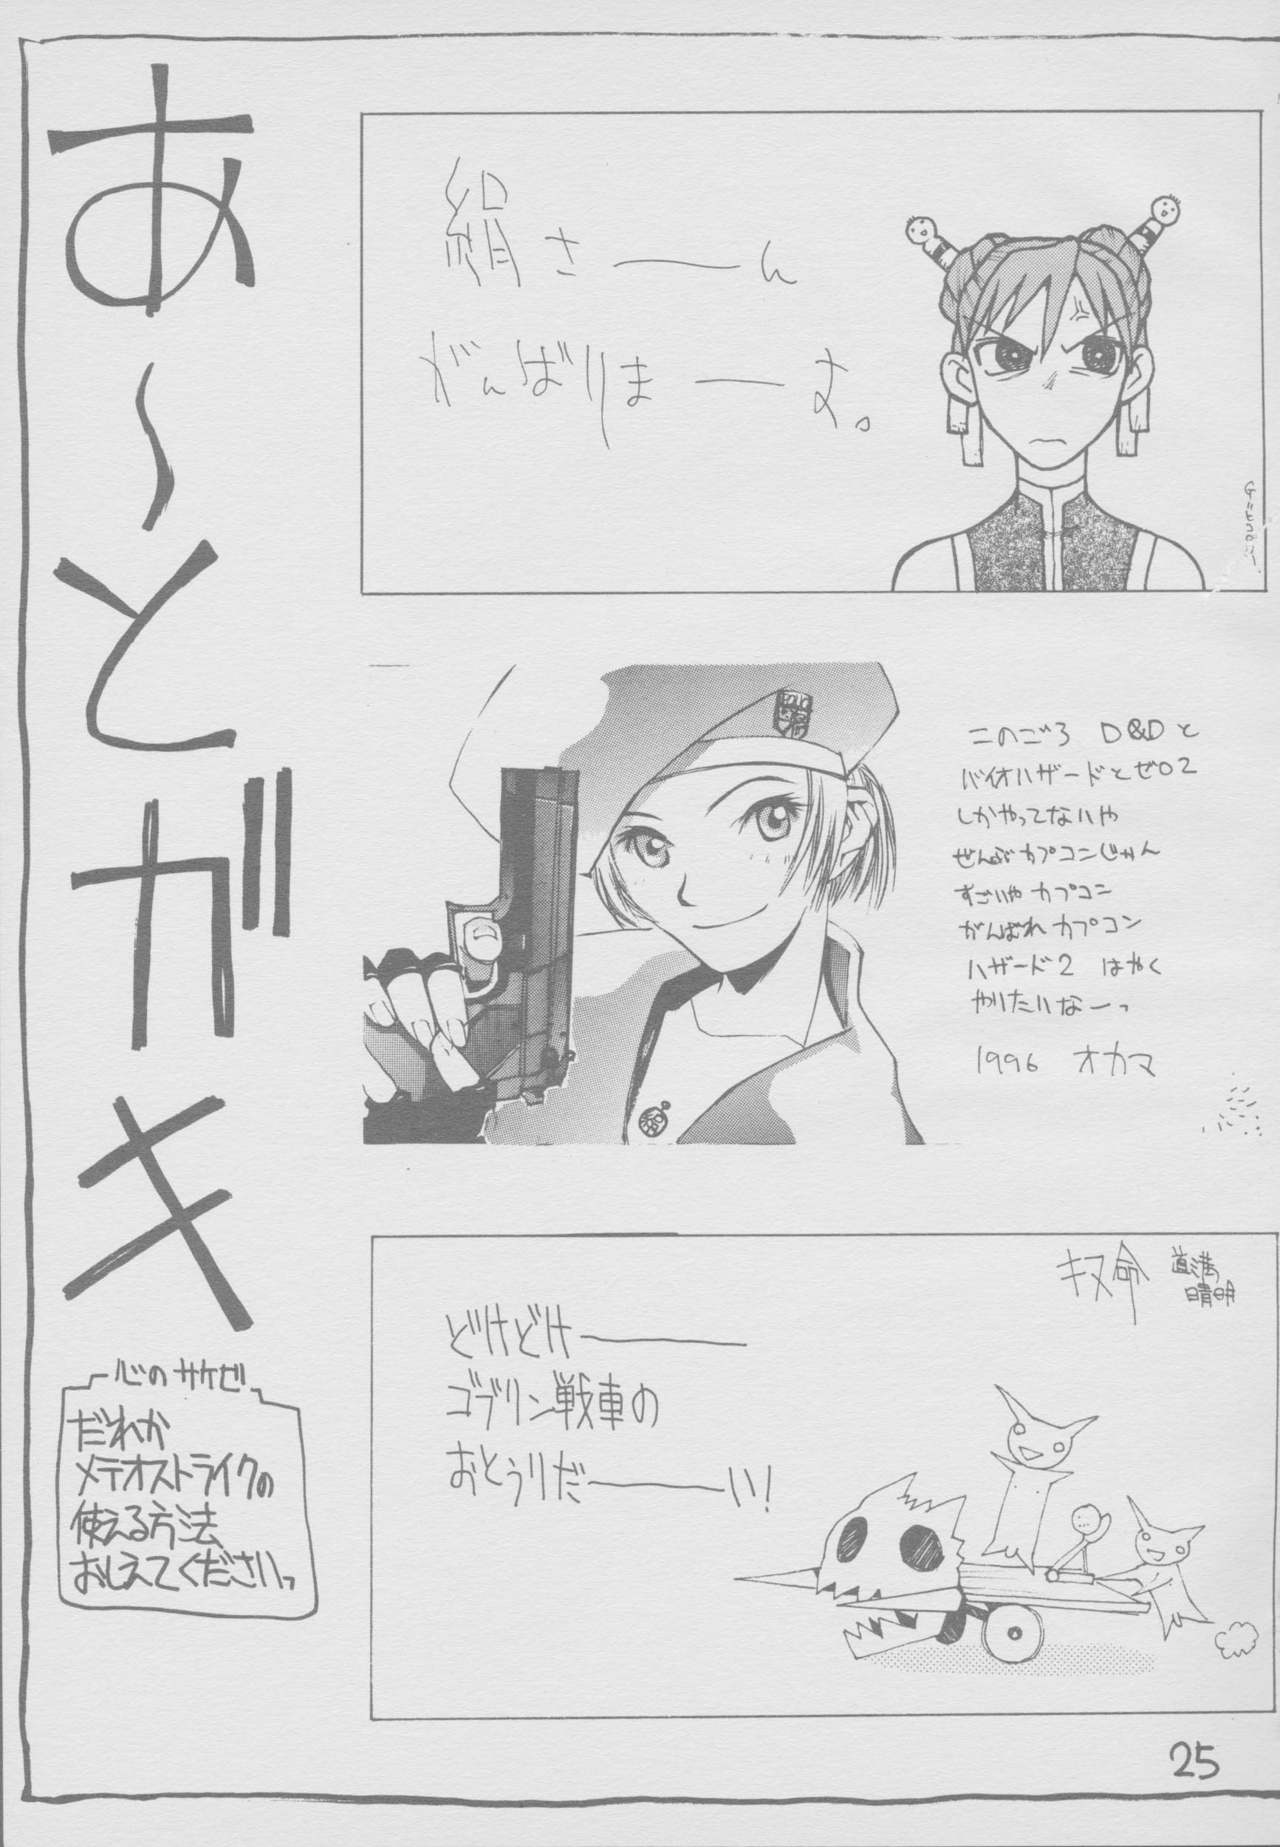 あ〜とガキ
絹さーーん
がんばりまーーす。
このごろ D&Dと
バイオハザードとゼロ2
しかやってないや
ぜんぶカプコンじゃん
すごいやカプコン
がんばれカプコン
ハザード2 はやく
やりたいなーっ
1996 オカマ
キヌ命
道満
晴明
どけどけーーー
ゴブリン戦車の
おとうりだーーーい!
心のサケビ
だれか
メテオストライクの
使える方法
おしえてくださいっ
25